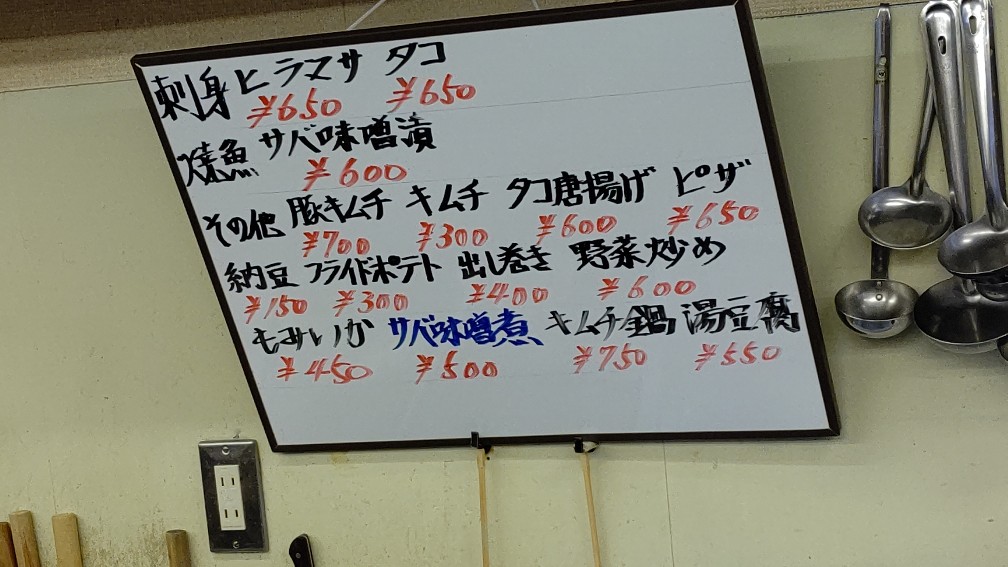 刺身 ヒラマサ タコ
¥650 ¥650
焼魚 サバ味噌漬
¥600
その他 豚キムチ キムチ タコ唐揚げ ピザ
¥700 ¥300 ¥600 ¥650
納豆 フライドポテト 出し巻き 野菜炒め
¥150 ¥300 ¥400 ¥600
もみいか サバ味噌煮 キムチ鍋 湯豆腐
¥450 ¥500 ¥750 ¥550